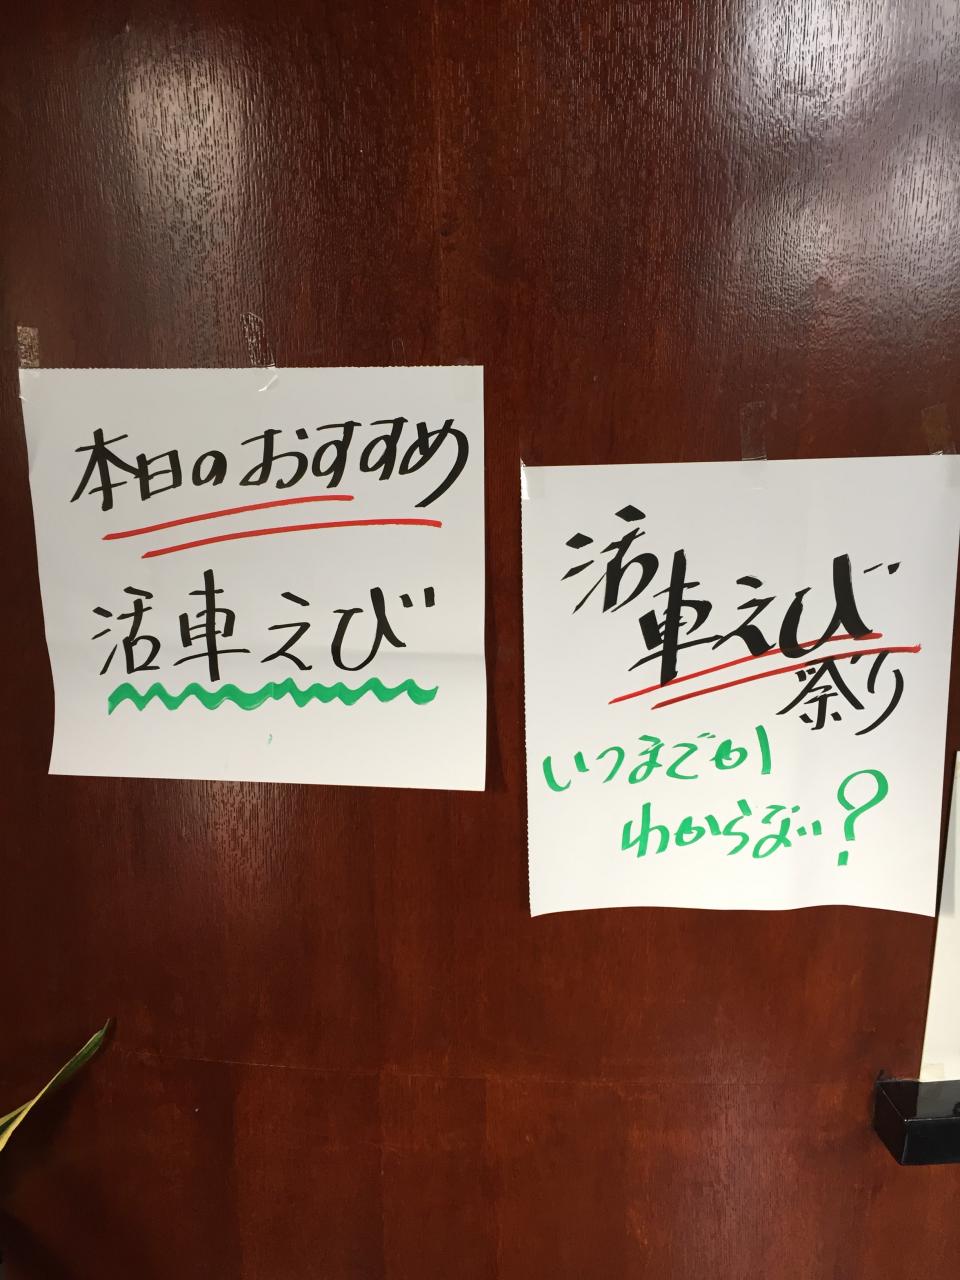 本日のおすすめ
活車えび
活車えび
祭り
いつまでか
わからない?